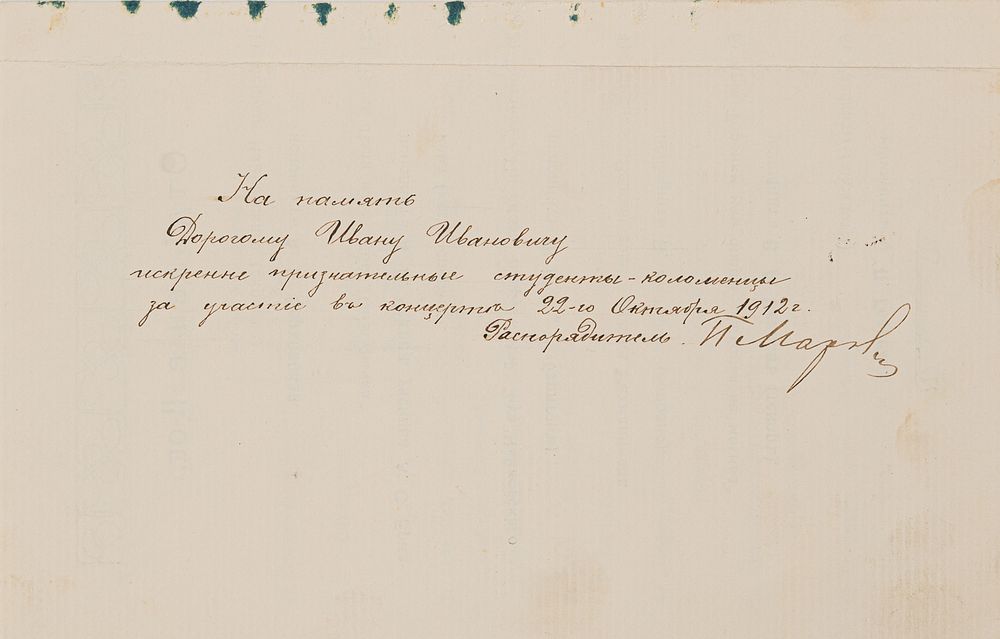 На память
Дорогому Ивану Ивановичу
искренне признательные студенты-коломенцы
за участіе въ концертѣ 22-го Октября 1912 г.
Распорядитель.